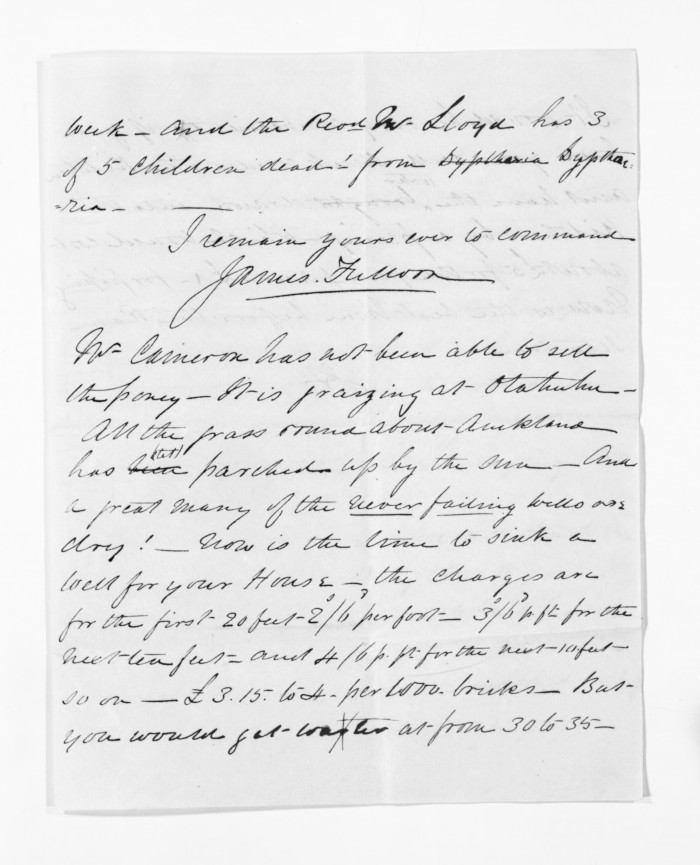 week – and the Revd Mr Lloyd has 3
of 5 children dead! from Dyptheria Dypthe-
-ria –
I remain yours ever to command
James. Fulloon
Mr Cameron has not been able to sell
the poney – It is graizing at Otahuhu –
All the grass round about Auckland
has been parched up by the sun – And
a great many of the never failing wells are
dry! – Now is the time to sink a
well for your House – the charges are
for the first 20 feet 2s/6d per foot – 3s/6d p. ft for the
next ten feet – and 4/6 p. ft. for the next 10 feet
so on – £3.15. to 4 – per 1000. bricks – But
you would get water at from 30 to 35 –